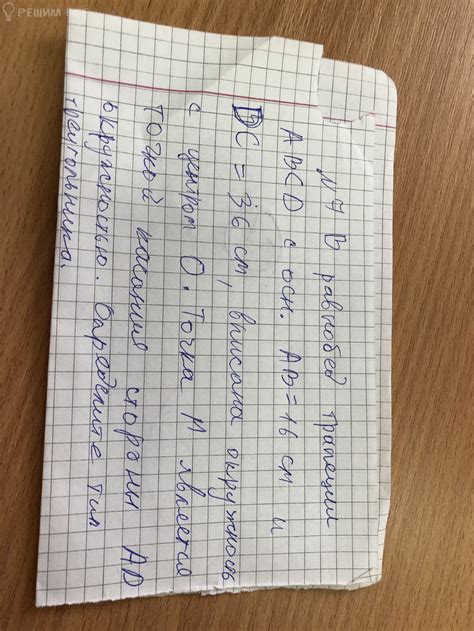 РЕШИМ В
N 4 В равнобед трапеции
ABCD с осн. AB=16 см и
DC = 36 см, вписана окружность
с центром О. Точка М является
точкой касания стороны AD
окружностью. Определите тип
треугольника.